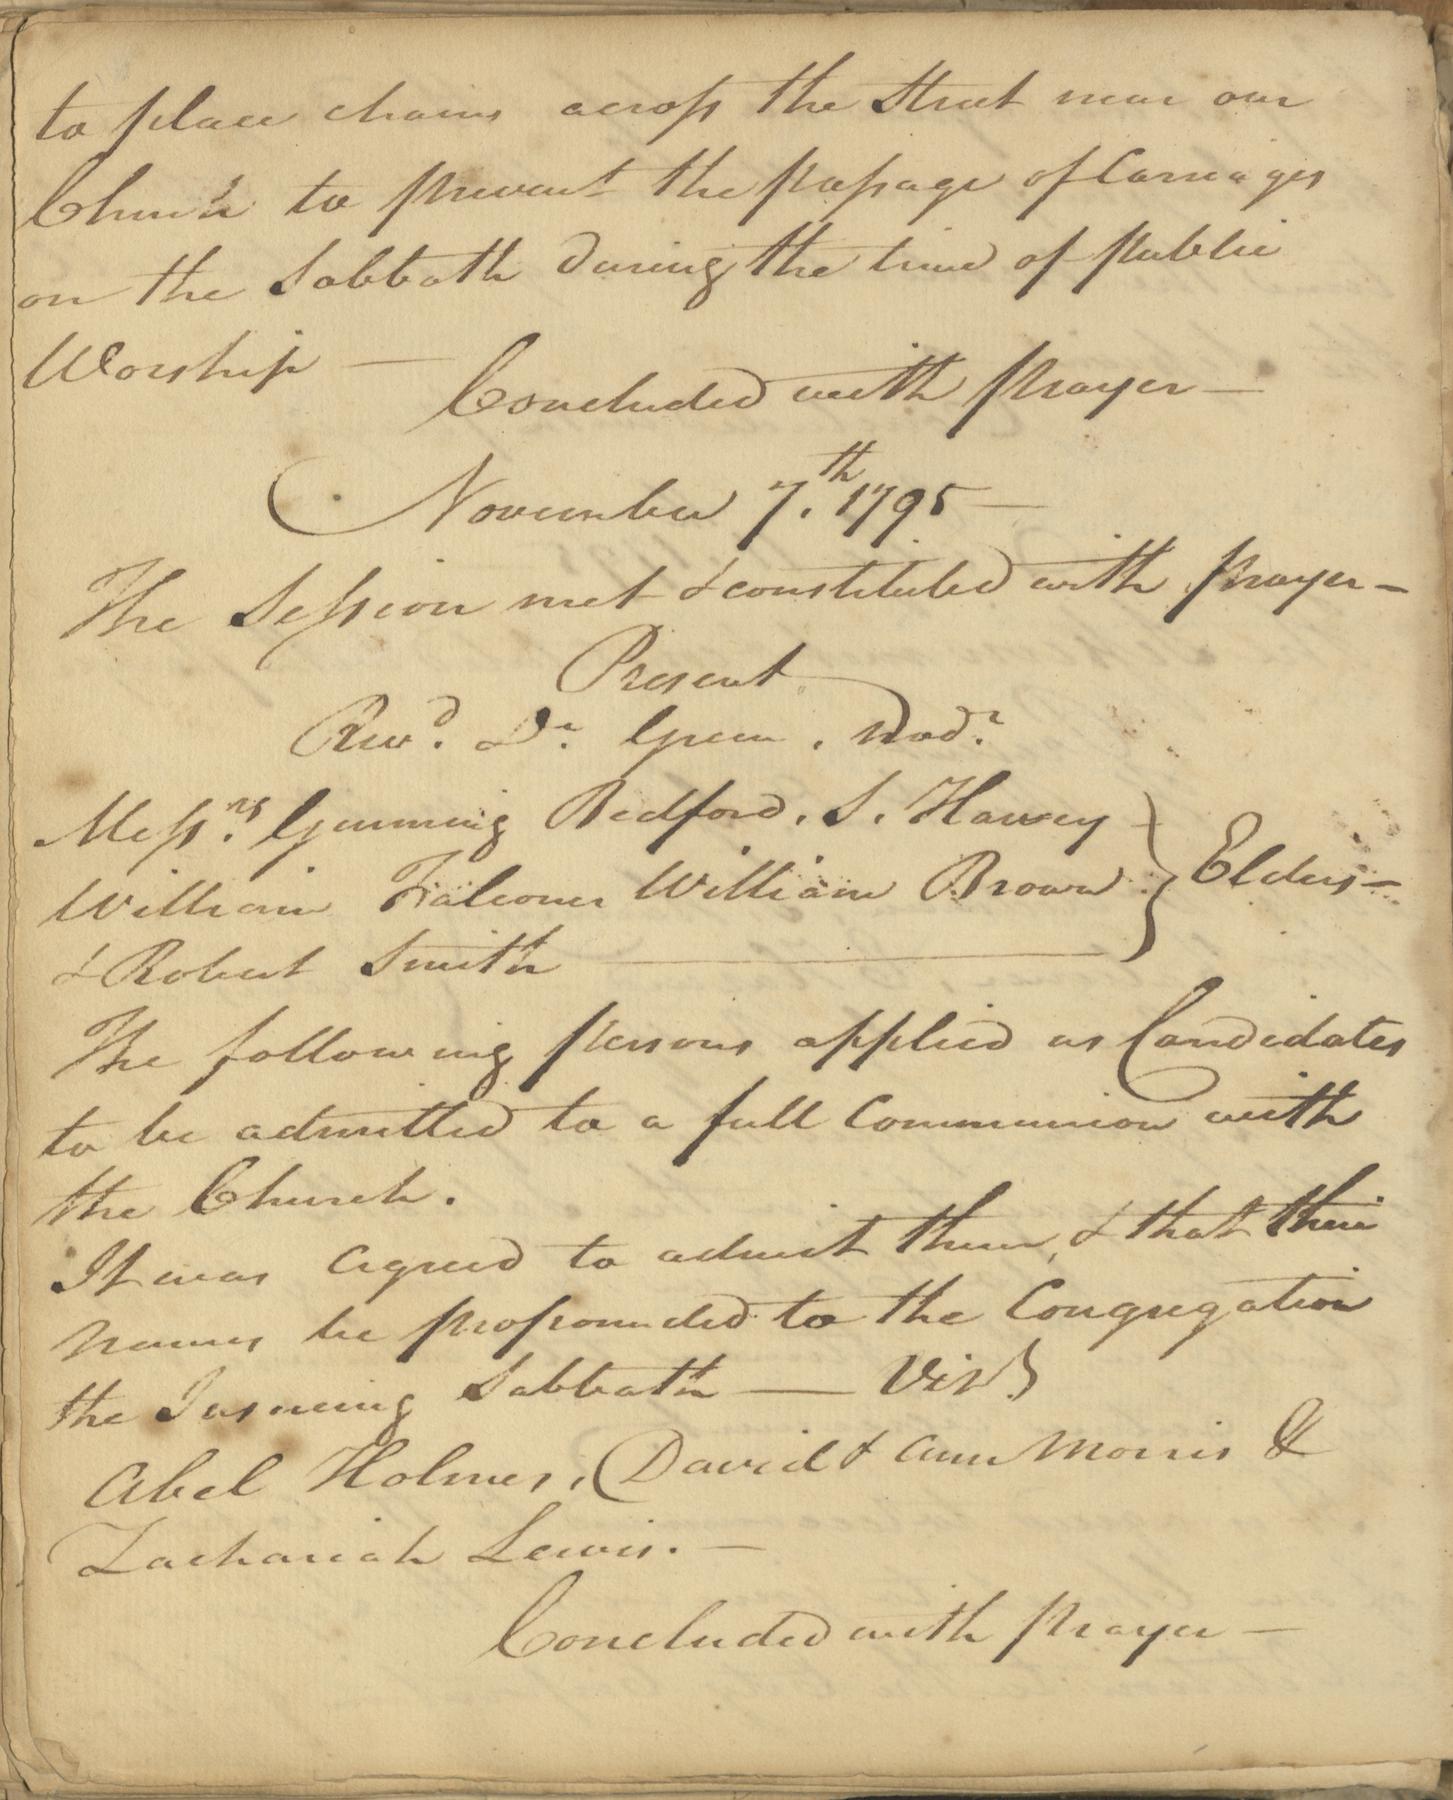 to place chains across the Street near our
Church to prevent the passage of Carriages
on the Sabbath during the time of public
Worship —
Concluded with prayer —
November 7.th 1795 —
The Session met & constituted with prayer —
Present
Revd. Dr. Green, Modr.
Messrs. Gunning Bedford, S. Harvey
William Falconer William Brown } Elders —
& Robert Smith
The following persons applied as Candidates
to be admitted to a full Communion with
the Church.
It was agreed to admit them, & that their
names be propounded to the Congregation
the Insuing Sabbath — Viz
Abel Holmes, David & Ann Morris &
Zachariah Lewis. —
Concluded with prayer —